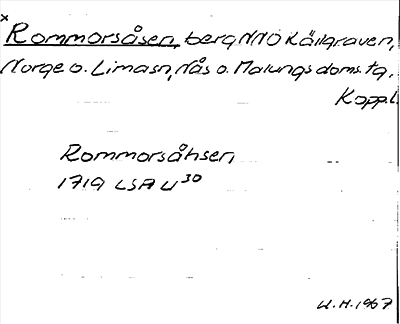 x
Rommorsåsen, berg NNO Källgraven,
Norge o. Limasn, Nås o. Malungs doms. tg.
Kopp.l.
Rommorsåhsen
1719 LSA U³⁰
U.H. 1967